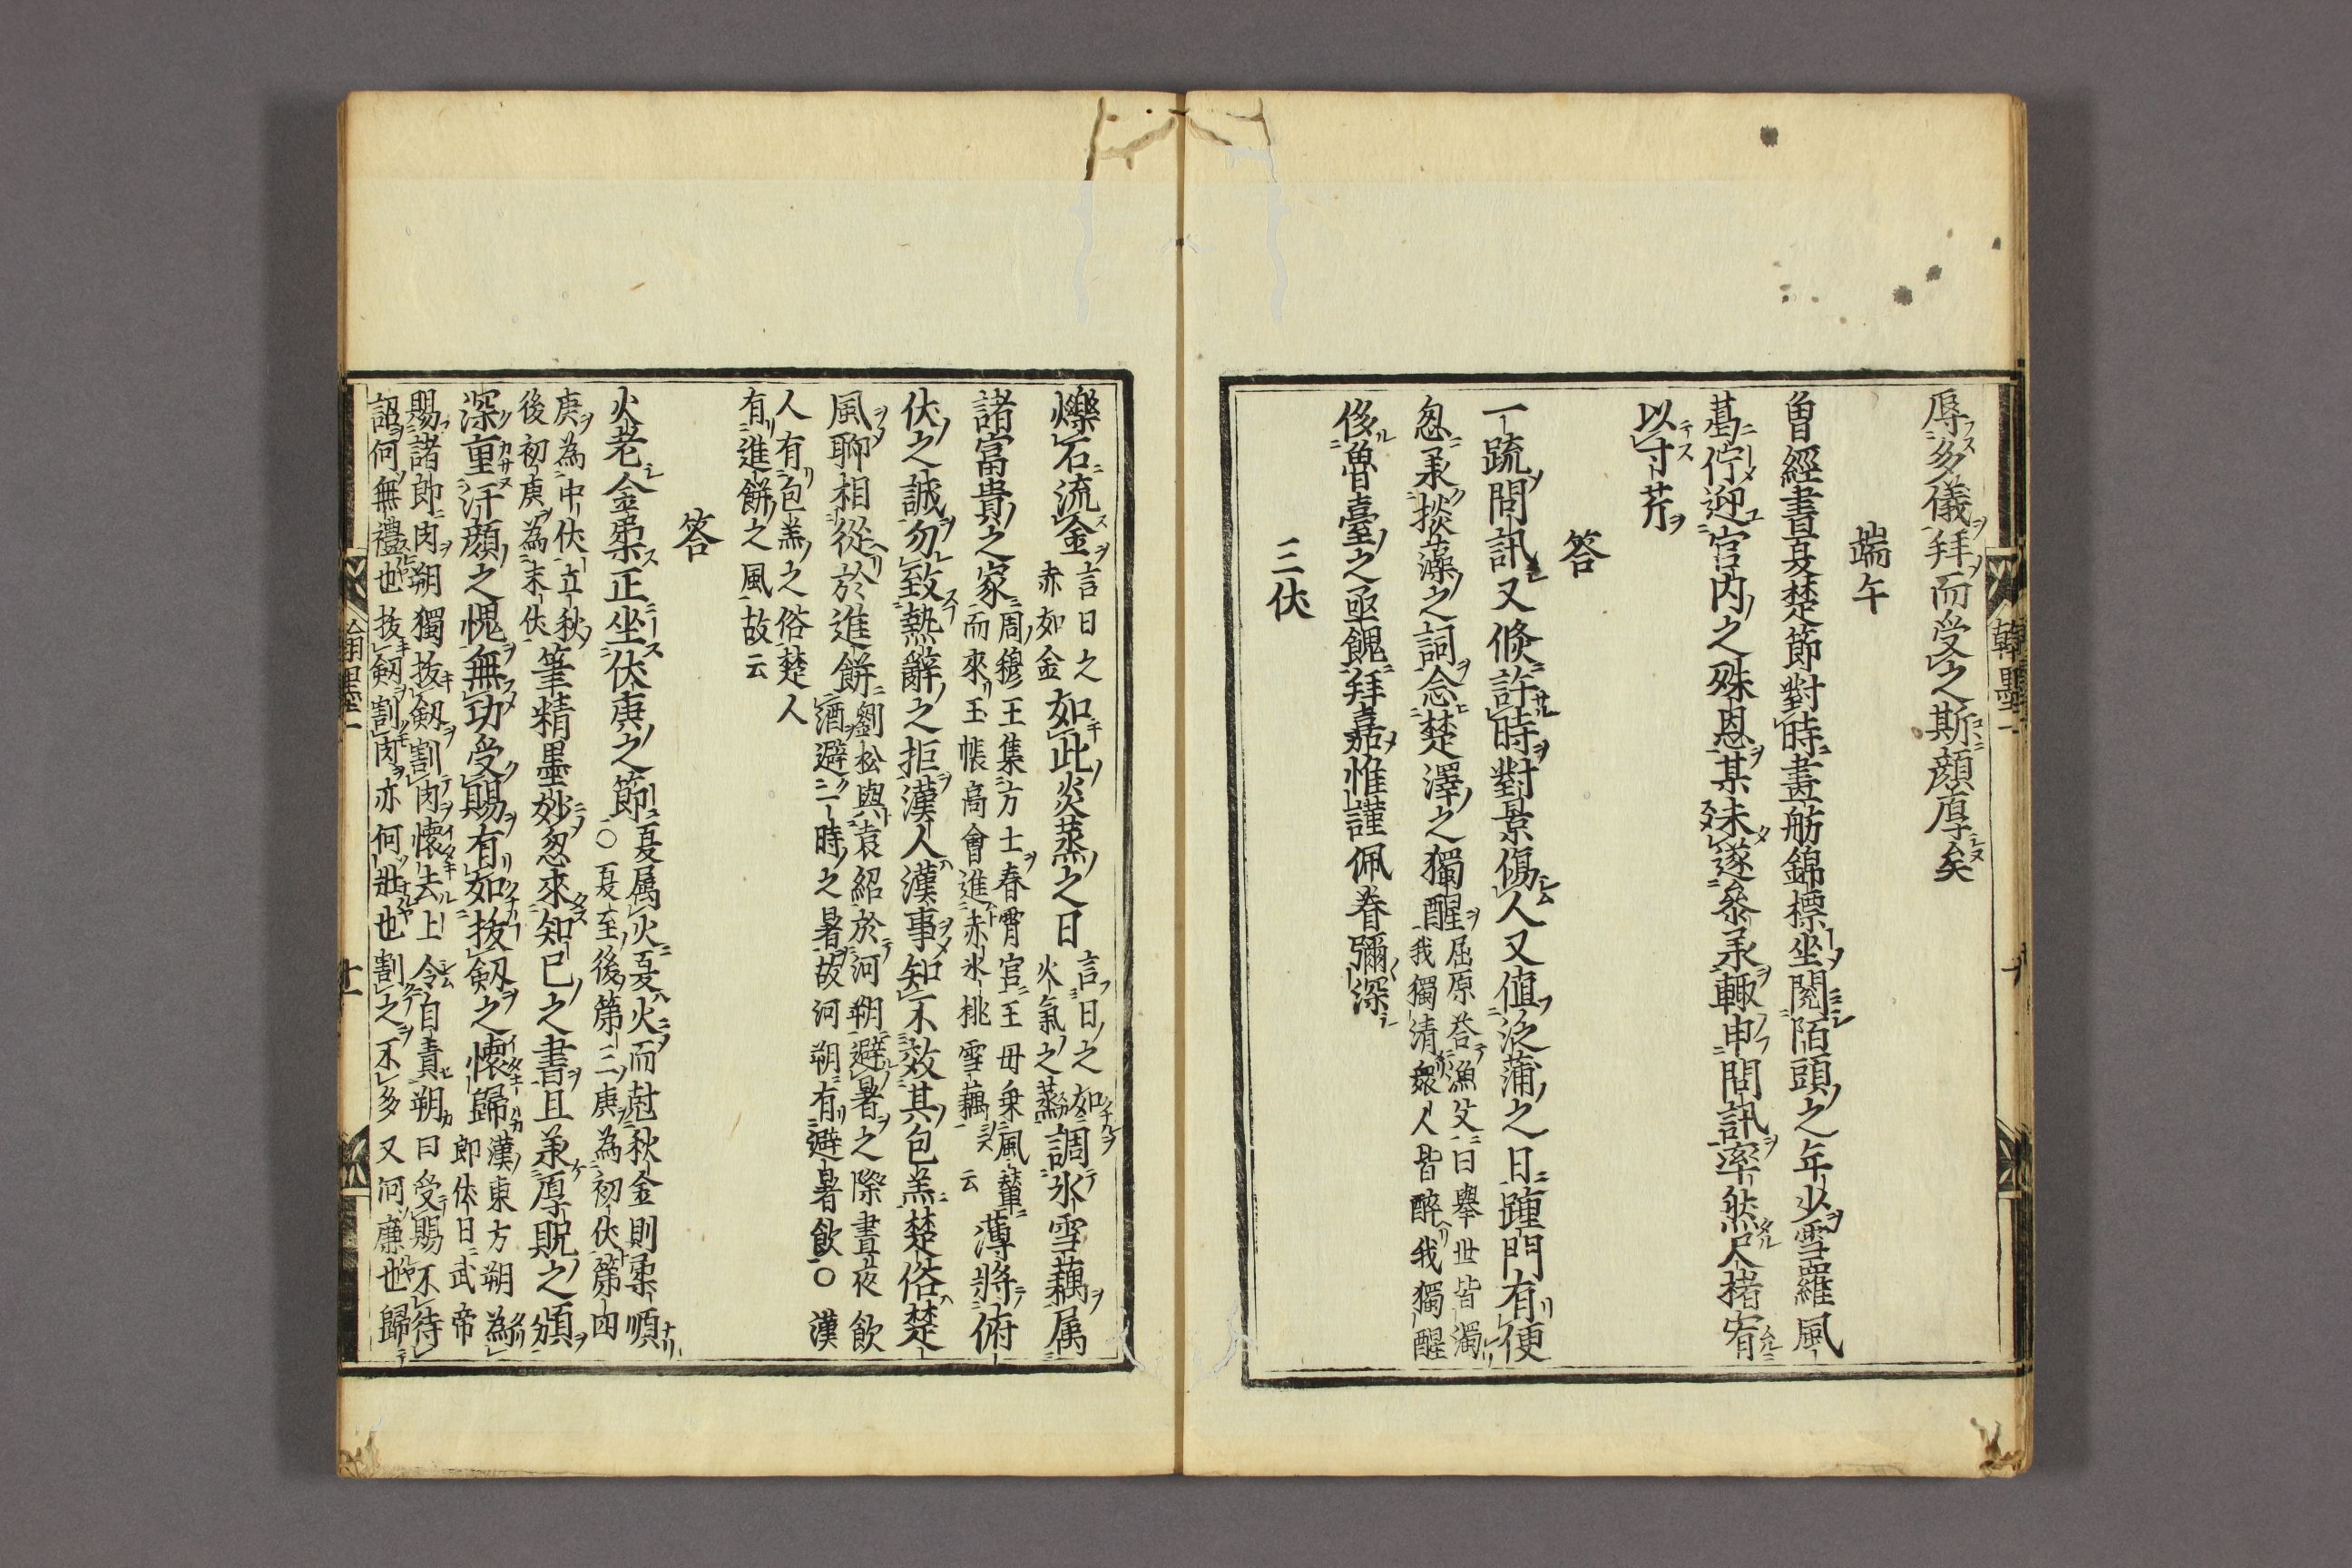 辱多儀拜而受之斯顔厚矣
端午
曾經書夏楚節對時畫舫錦標坐閲陌頭之年少雪羅風
葛佇迎官内之殊恩某未遂參承輙申問訊率然尺楮宥
以寸芹
答
一䟽問訊又倐許時對景傷人又値泛蒲之日踵門有便
忽承掞藻之詞念楚澤之獨醒
屈原荅漁父曰舉世皆濁
我獨清衆人皆醉我獨醒
侈魯臺之亟餽拜嘉惟謹佩眷彌深
三伏
爍石流金
言日之
赤如金
如此炎蒸之日
言日之如
火氣之蒸
調氷雪藕属
諸富貴之家
周穆王集方士春霄官王母乗風輦
而來玉帳高會進赤氷桃雪藕云
薄將俯
伏之誠勿致熱辭之拒漢人漢事知不效其包羔楚俗楚
風聊相從於進餅
劉松與袁紹於河朔避暑之際晝夜飲
酒避一時之暑故河朔有避暑飲○漢
人有包羔之俗楚人
有進餅之風故云
答
火老金柔正坐伏庚之節
夏属火夏火而尅秋金則柔順
○夏至後第三庚為初伏第四
庚為中伏立秋
後初庚為末伏
筆精墨妙忽來知已之書且承厚貺之頒
深重汗顔之愧無功受賜有如抜劔之懷歸
漢東方朔為
郎伏日武帝
賜諸郎肉朔獨抜劔割肉懷去上令自責朔曰受賜不待
詔何無禮也抜劔割肉亦何壯也割之不多又何廉也歸
翰墨一
十
翰墨一
十一